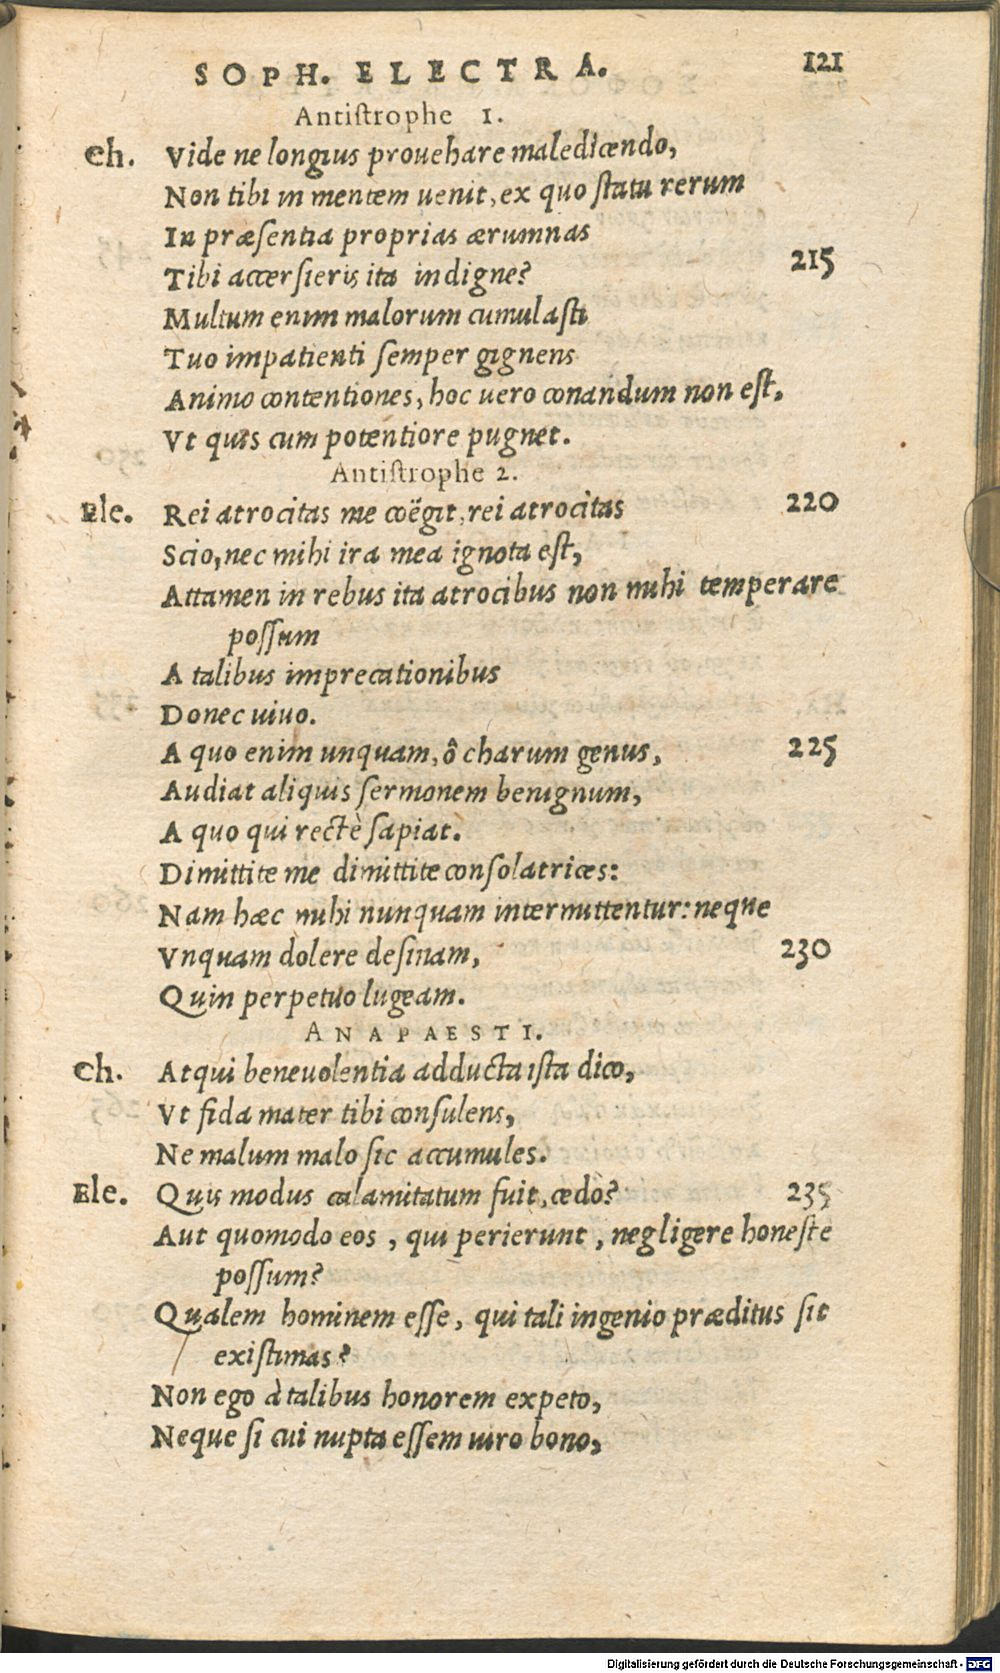 SOPH. ELECTRA. 121
Antistrophe 1.
Ch. Vide ne longius prouehare maledicendo,
Non tibi in mentem uenit, ex quo statu rerum
In præsentia proprias ærumnas
Tibi accersieris ita indigne? 215
Multum enim malorum cumulasti
Tuo impatienti semper gignens
Animo contentiones, hoc uero conandum non est,
Vt quis cum potentiore pugnet.
Antistrophe 2.
Ele. Rei atrocitas me coëgit, rei atrocitas 220
Scio, nec mihi ira mea ignota est,
Attamen in rebus ita atrocibus non mihi temperare
possum
A talibus imprecationibus
Donec uiuo.
A quo enim unquam, ô charum genus, 225
Audiat aliquis sermonem benignum,
A quo qui rectè sapiat.
Dimittite me dimittite consolatrices:
Nam hæc mihi nunquam intermittentur: neque
Vnquam dolere desinam, 230
Quin perpetuo lugeam.
ANAPAESTI.
Ch. Atqui beneuolentia adducta ista dico,
Vt fida mater tibi consulens,
Ne malum malo sic accumules.
Ele. Quis modus calamitatum fuit, cedo? 235
Aut quomodo eos, qui perierunt, negligere honeste
possum?
Qualem hominem esse, qui tali ingenio præditus sit
existimas?
Non ego à talibus honorem expeto,
Neque si cui nupta essem uiro bono,
Digitalisierung gefördert durch die Deutsche Forschungsgemeinschaft - DFG